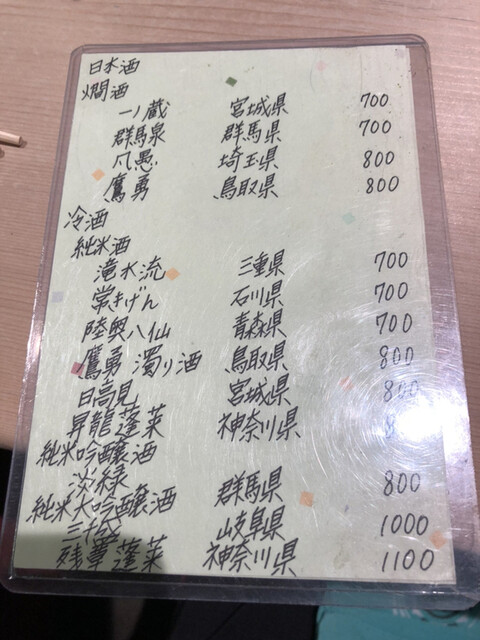 日本酒
燗酒
一ノ蔵 宮城県 700
群馬泉 群馬県 700
凡愚 埼玉県 800
鷹勇 鳥取県 800
冷酒
純米酒
滝水流 三重県 700
常きげん 石川県 700
陸奥八仙 青森県 700
鷹勇 濁り酒 鳥取県 800
日高見 宮城県 800
昇龍蓬莱 神奈川県
純米吟醸酒
淡緑 群馬県 800
純米大吟醸酒
岐阜県 1000
残草蓬莱 神奈川県 1100